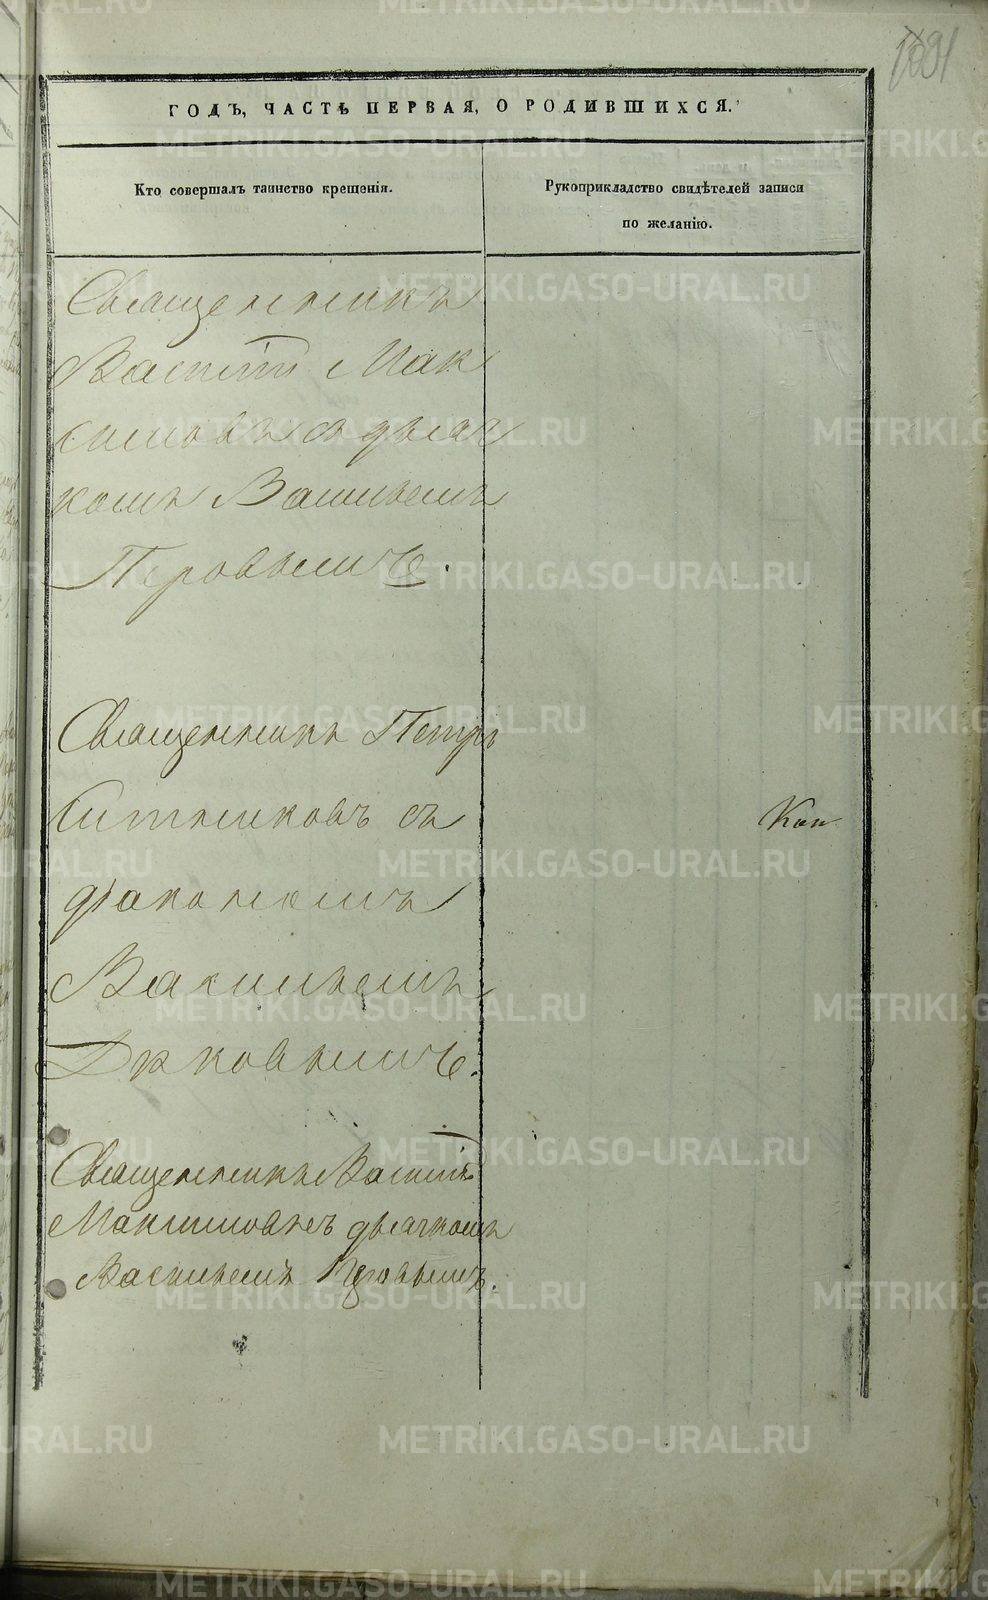 ГОДЪ, ЧАСТЬ ПЕРВАЯ, О РОДИВШИХСЯ.
Кто совершалъ таинство крещенія.
Рукоприкладство свидѣтелей записи
по желанію.
Священникъ
Василій Мак
симовъ съ дьяч
комъ Васильемъ
Перовымъ.
Священникъ Петръ
Ситниковъ съ
діакономъ
Васильемъ
Священникъ Василій
Максимовъ съ дьячкомъ
Васильемъ Перовымъ.
METRIKI.GASO-URAL.RU